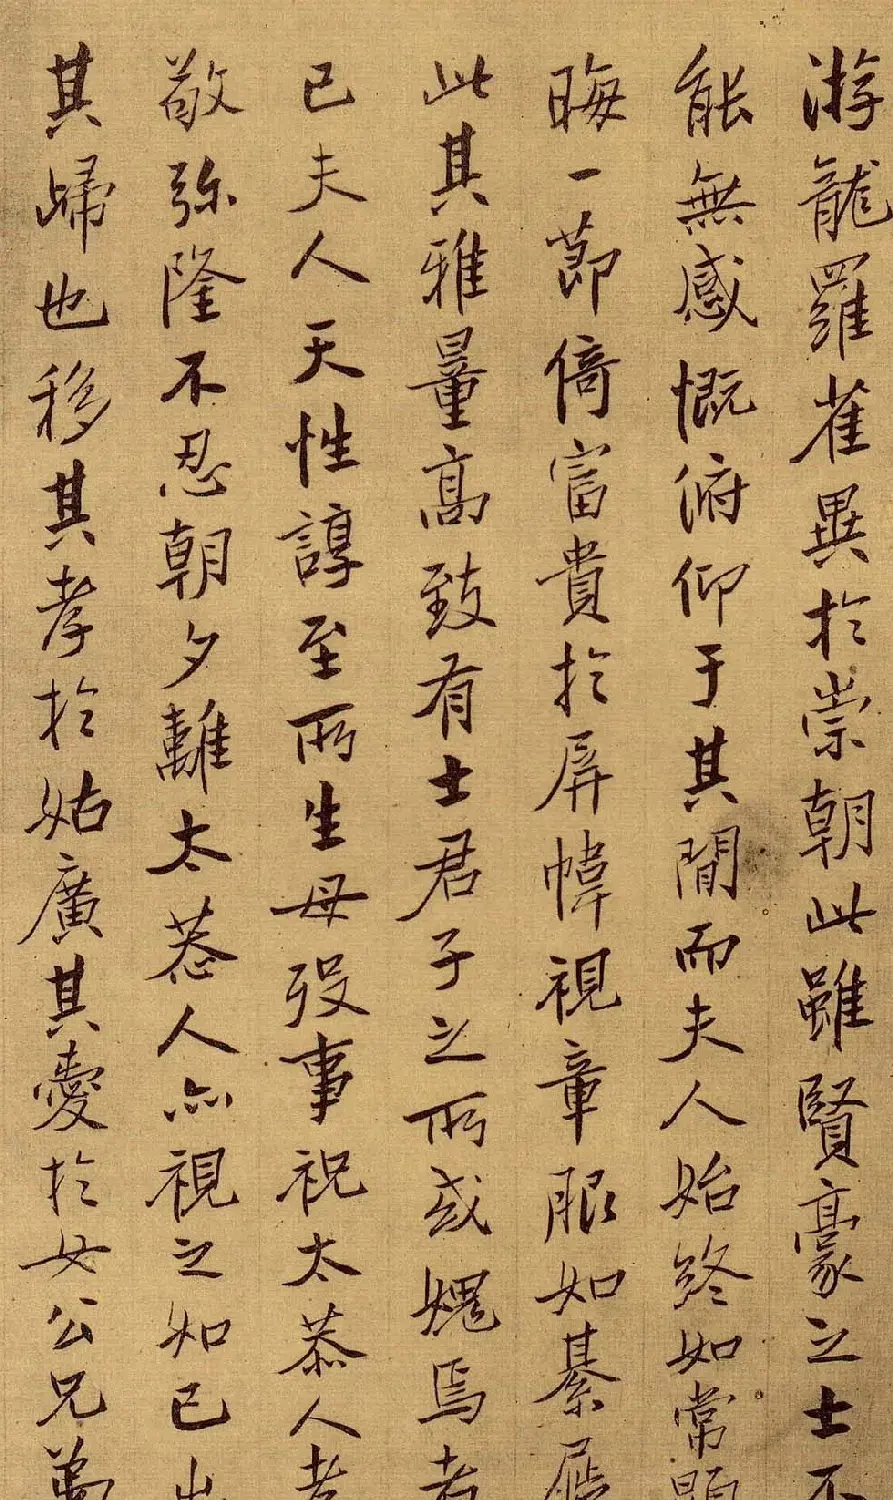 游龍羅雀異於崇朝此雖賢豪之士不
能無感慨俯仰于其間而夫人始終如常顯
晦一節倚富貴於屏幃視章服如綦屐
此其雅量高致有士君子之所或媿焉者
已夫人天性諄至所生母歿事祝太恭人孝
敬弥隆不忍朝夕離太恭人亦視之如已出
其歸也移其孝於姑廣其愛於女公兄弟